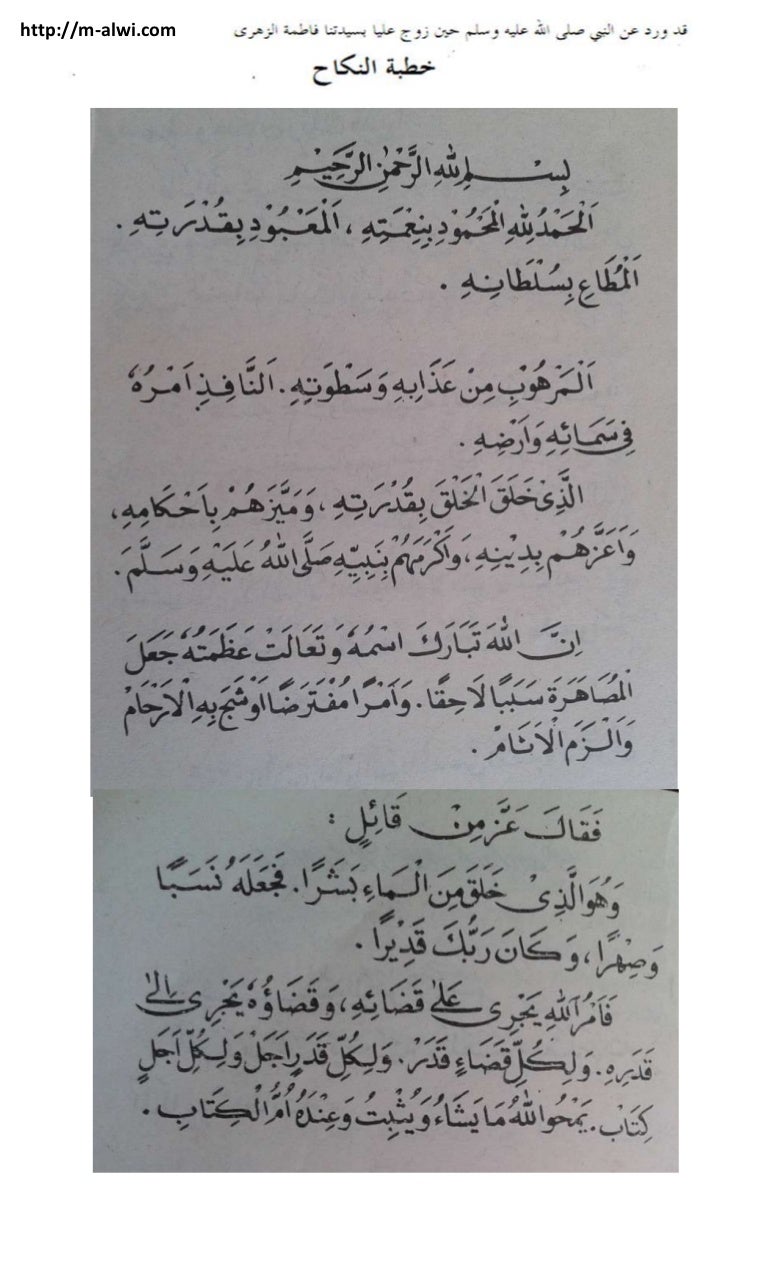 http://m-alwi.com
قد ورد عن النبي صلى الله عليه وسلم حين زوج عليا بسيدتنا فاطمة الزهرى
خطبة النكاح
بِسْمِ اللهِ الرَّحْمٰنِ الرَّحِيْمِ
اَلْحَمْدُ لِلّٰهِ الْمَحْمُوْدِ بِنِعْمَتِهِ ، اَلْمَعْبُوْدِ بِقُدْرَتِهِ .
اَلْمُطَاعِ بِسُلْطَانِهِ .
اَلْمَرْهُوْبِ مِنْ عَذَابِهِ وَسَطْوَتِهِ . اَلنَّافِذِ اَمْرُهُ
فِى سَمَائِهِ وَاَرْضِهِ .
الَّذِىْ خَلَقَ الْخَلْقَ بِقُدْرَتِهِ ، وَمَيَّزَهُمْ بِاَحْكَامِهِ ،
وَاَعَزَّهُمْ بِدِيْنِهِ ، وَاَكْرَمَهُمْ بِنَبِيِّهِ صَلَّى اللهُ عَلَيْهِ وَسَلَّمَ .
اِنَّ اللهَ تَبَارَكَ اسْمُهُ وَتَعَالَتْ عَظَمَتُهُ جَعَلَ
الْمُصَاهَرَةَ سَبَبًا لَاحِقًا . وَاَمْرًا مُفْتَرَضًا اَوْشَجَ بِهِ الْاَرْحَامَ
وَاَلْزَمَ الْاَثَامَ .
فَقَالَ عَزَّ مِنْ قَائِلٍ :
وَهُوَ الَّذِىْ خَلَقَ مِنَ الْمَاءِ بَشَرًا . فَجَعَلَهُ نَسَبًا
وَصِهْرًا ، وَكَانَ رَبُّكَ قَدِيْرًا .
فَاَمْرُ اللهِ يَجْرِى عَلٰى قَضَائِهِ ، وَقَضَاؤُهُ يَجْرِى اِلٰى
قَدَرِهِ . وَلِكُلِّ قَضَاءٍ قَدَرٌ . وَلِكُلِّ قَدَرٍ اَجَلٌ وَلِكُلِّ اَجَلٍ
كِتَابٌ . يَمْحُوا اللهُ مَا يَشَاءُ وَيُثْبِتُ وَعِنْدَهُ اُمُّ الْكِتَابِ .